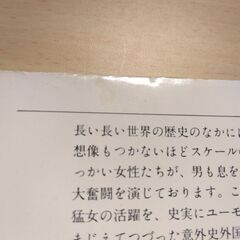 長い長い世界の歴史のなかには
想像もつかないほどスケール
っかい女性たちが、男も息を
大奮闘を演じております。こ
猛女の活躍を、史実にユーモ
まじえてつづった意外史外国